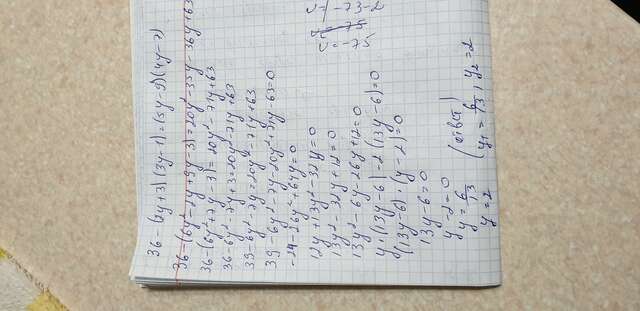 36-(2y+3)(3y-1)=(5y-9)(4y-7)
36-(6y²-2y+9y-3)=20y²-35y-36y+63
36-(6y²+7y-3)=20y²-71y+63
36-6y²-7y+3=20y²-71y+63
39-6y²-7y=20y²-71y+63
39-6y²-7y-20y²+71y-63=0
-24-26y²+64y=0
12y+13y²-32y=0
13y²-32y+12=0
13y²-6y-26y+12=0
y·(13y-6)-2(13y-6)=0
(13y-6)·(y-2)=0
13y-6=0
y-2=0
y=6/13
y=2
y₁=6/13, y₂=2
-73-2
=-75